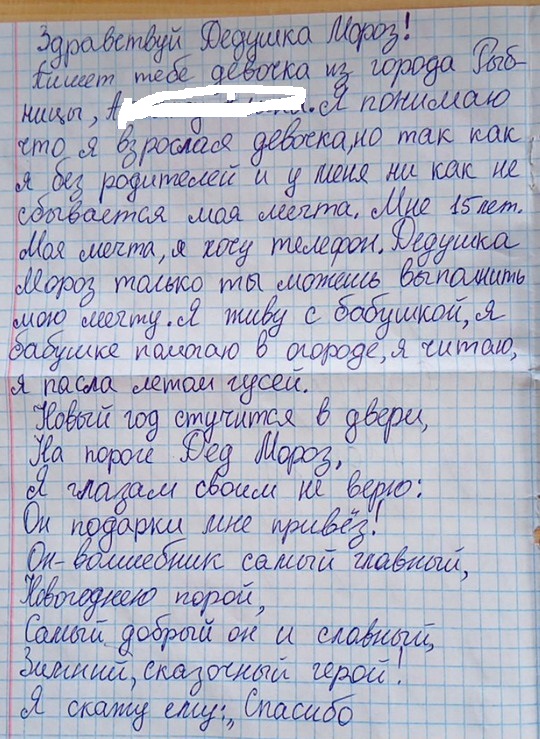 Здравствуй Дедушка Мороз!
Пишет тебе девочка из города Рыб-
ницы, А . Я понимаю
что я взрослая девочка, но так как
я без родителей и у меня ни как не
сбывается моя мечта. Мне 15 лет.
Моя мечта, я хочу телефон. Дедушка
Мороз только ты можешь выполнить
мою мечту. Я живу с бабушкой, я
бабушке помогаю в огороде, я читаю,
я пасла летом гусей.
Новый год стучится в двери,
На пороге Дед Мороз,
Я глазам своим не верю:
Он подарки мне привёз!
Он-волшебник самый главный,
Новогоднею порой,
Самый добрый он и славный,
Зимний, сказочный герой!
Я скажу ему: „Спасибо